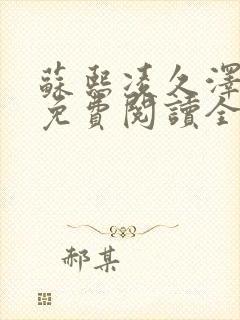 蘇熙凌久澤
免費閱讀全
郝某